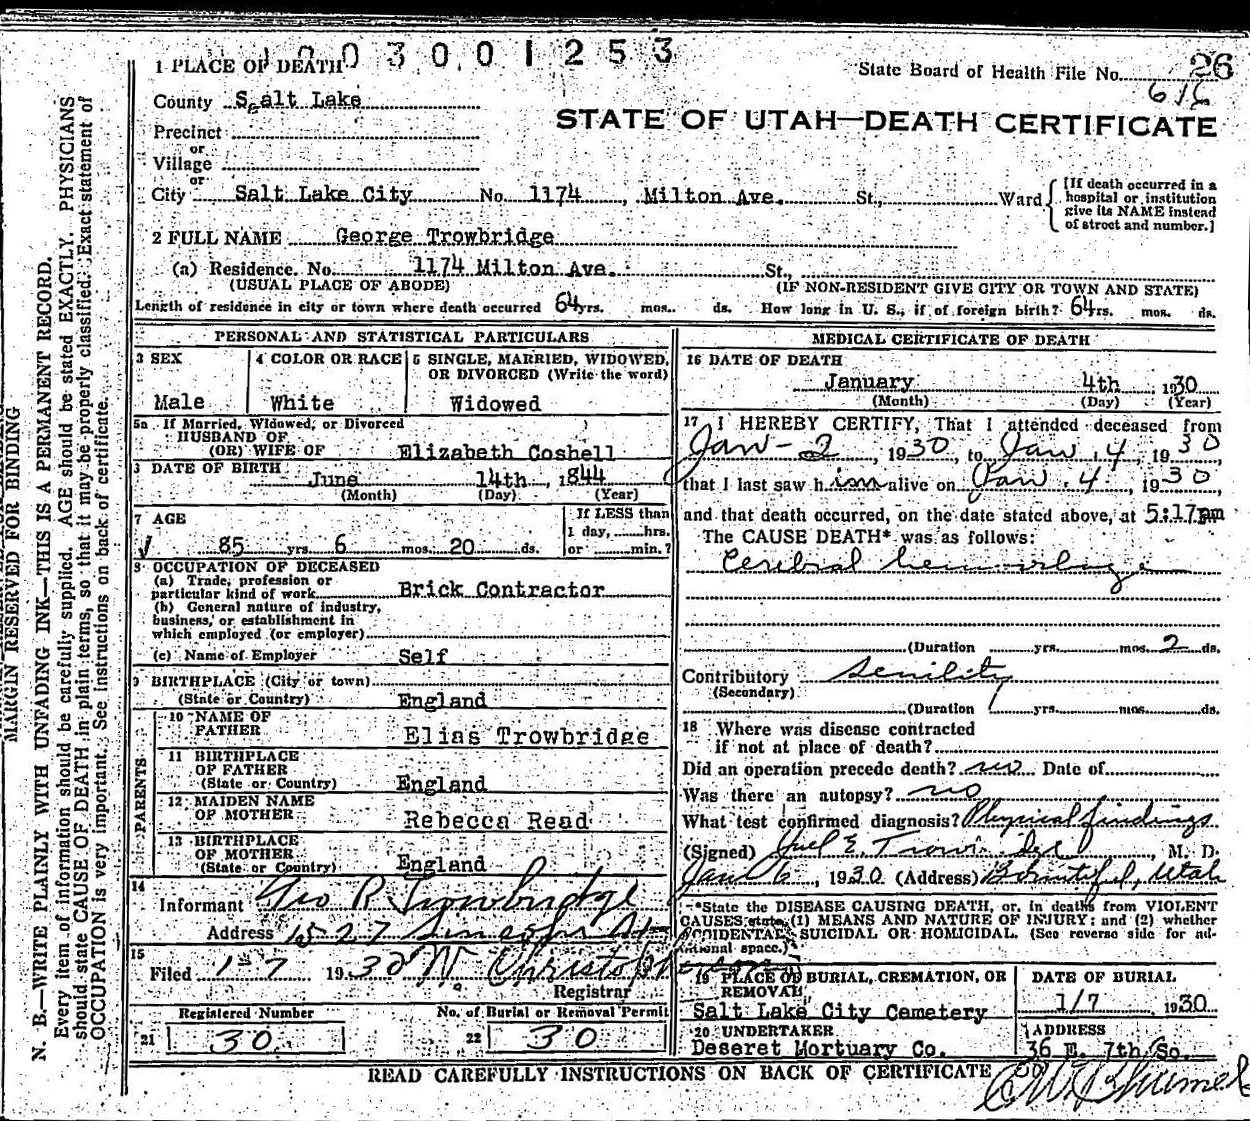 1003001253
26
1 PLACE OF DEATH
State Board of Health File No.
616
County Salt Lake
STATE OF UTAH—DEATH CERTIFICATE
Precinct
or
Village
or
City Salt Lake City No. 1174, Milton Ave. St., Ward
[If death occurred in a
hospital or institution
give its NAME instead
of street and number.]
2 FULL NAME George Trowbridge
(a) Residence. No. 1174 Milton Ave. St.,
(USUAL PLACE OF ABODE) (IF NON-RESIDENT GIVE CITY OR TOWN AND STATE)
Length of residence in city or town where death occurred 64 yrs. mos. ds. How long in U. S., if of foreign birth? 64 yrs. mos. ds.
PERSONAL AND STATISTICAL PARTICULARS
3 SEX
Male
4 COLOR OR RACE
White
5 SINGLE, MARRIED, WIDOWED,
OR DIVORCED (Write the word)
Widowed
5a If Married, Widowed, or Divorced
HUSBAND OF
(OR) WIFE OF Elizabeth Coshell
DATE OF BIRTH
June 14th, 1844
(Month) (Day) (Year)
7 AGE
85 yrs. 6 mos. 20 ds.
If LESS than
1 day, hrs.
or min.?
8 OCCUPATION OF DECEASED
(a) Trade, profession or
particular kind of work Brick Contractor
(b) General nature of industry,
business, or establishment in
which employed (or employer)
(c) Name of Employer Self
9 BIRTHPLACE (City or town)
(State or Country) England
PARENTS
10 NAME OF
FATHER Elias Trowbridge
11 BIRTHPLACE
OF FATHER
(State or Country) England
12 MAIDEN NAME
OF MOTHER Rebecca Read
13 BIRTHPLACE
OF MOTHER
(State or Country) England
14
Informant Geo R Trowbridge
Address 1527
15
Filed 1-7 1930 W.
Registrar
Registered Number
21 30
No. of Burial or Removal Permit
22 30
MEDICAL CERTIFICATE OF DEATH
16 DATE OF DEATH
January 4th, 1930
(Month) (Day) (Year)
17 I HEREBY CERTIFY, That I attended deceased from
Jan - 2, 1930, to Jan. 4, 1930,
that I last saw him alive on Jan. 4, 1930,
and that death occurred, on the date stated above, at 5:17 pm
The CAUSE DEATH* was as follows:
Cerebral hemorrhage
(Duration yrs. mos. 2 ds.
Contributory Senility
(Secondary)
(Duration yrs. mos. ds.
18 Where was disease contracted
if not at place of death?
Did an operation precede death? no Date of
Was there an autopsy? no
What test confirmed diagnosis? Physical findings
(Signed) E. Trowbridge, M. D.
Jan 6, 1930 (Address) Bountiful, Utah
*State the DISEASE CAUSING DEATH, or, in deaths from VIOLENT
CAUSES state (1) MEANS AND NATURE OF INJURY; and (2) whether
ACCIDENTAL, SUICIDAL OR HOMICIDAL. (See reverse side for ad-
ditional space.)
19 PLACE OF BURIAL, CREMATION, OR
REMOVAL
Salt Lake City Cemetery
DATE OF BURIAL
1/7 1930
20 UNDERTAKER
Deseret Mortuary Co.
ADDRESS
36 E. 7th So.
READ CAREFULLY INSTRUCTIONS ON BACK OF CERTIFICATE
MARGIN RESERVED FOR BINDING
N. B.—WRITE PLAINLY WITH UNFADING INK—THIS IS A PERMANENT RECORD.
Every item of information should be carefully supplied. AGE should be stated EXACTLY. PHYSICIANS
should state CAUSE OF DEATH in plain terms, so that it may be properly classified. Exact statement of
OCCUPATION is very important. See instructions on back of certificate.